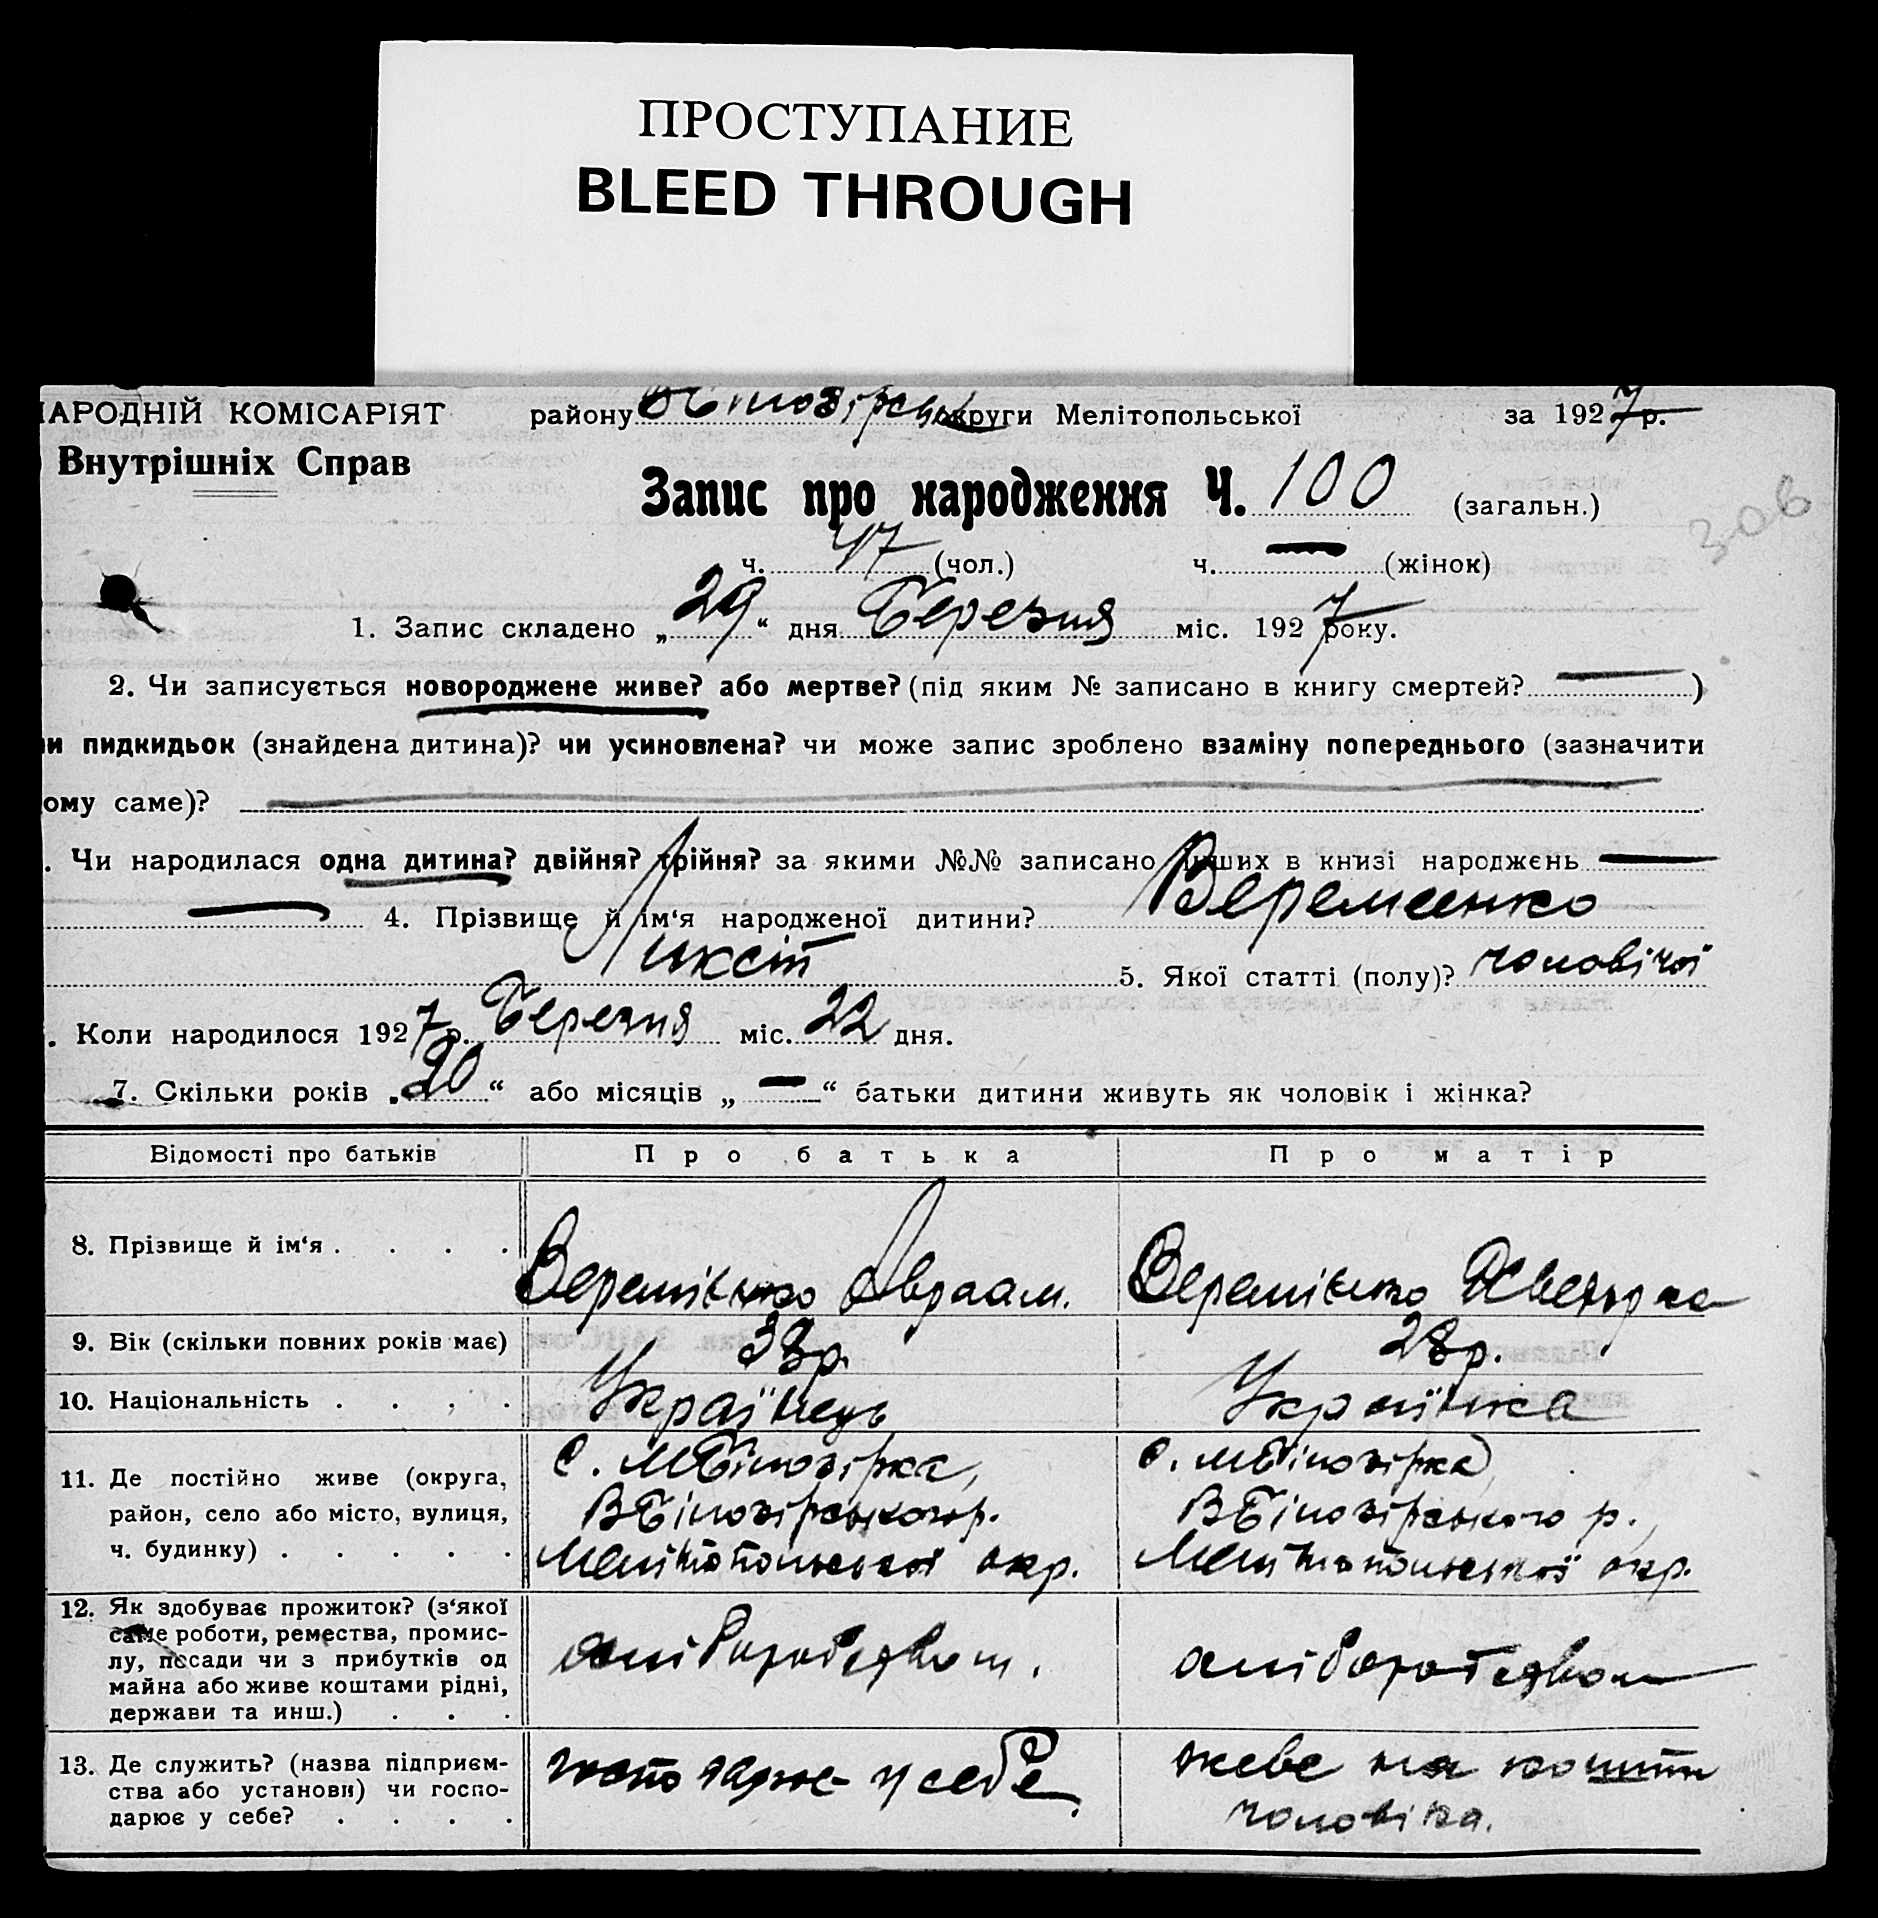 ПРОСТУПАНИЕ
BLEED THROUGH
НАРОДНІЙ КОМІСАРІЯТ району ВБілозірської округи Мелітопольської за 1927 р.
Внутрішніх Справ
Запис про народження Ч. 100 (загальн.)
306
ч. 47 (чол.) ч. — (жінок)
1. Запис складено „29“ дня Березня міс. 1927 року.
2. Чи записується новороджене живе? або мертве? (під яким № записано в книгу смертей? —)
и пидкидьок (знайдена дитина)? чи усиновлена? чи може запис зроблено взаміну попереднього (зазначити
ому саме)? —
. Чи народилася одна дитина? двійня? трійня? за якими №№ записано инших в книзі народжень —
— 4. Прізвище й ім‘я народженої дитини? Веремеенко
5. Якої статті (полу)? чоловічої
. Коли народилося 1927 р. Березня міс. 22 дня.
7. Скільки років „20“ або місяців „—“ батьки дитини живуть як чоловік і жінка?
Відомості про батьків Про батька Про матір
8. Прізвище й ім‘я . . . . Веремієнко Авраам. Веремієнко
9. Вік (скільки повних років має) 38р. 28р.
10. Національність . . . . Українець Українка
11. Де постійно живе (округа, с. МБілозірка, с. МБілозірка,
район, село або місто, вулиця, ВБілозірського р. ВБілозірського р.,
ч. будинку) . . . . . Мелітопольської окр. Мелітопольської окр.
12. Як здобуває прожиток? (з‘якої
саме роботи, ремества, промис-
лу, посади чи з прибутків од хліборобством. хліборобством
майна або живе коштами рідні,
держави та инш.) . . .
13. Де служить? (назва підприєм- господарює у себе. живе на кошти
ства або установи) чи госпо- чоловіка.
дарює у себе? . . . .